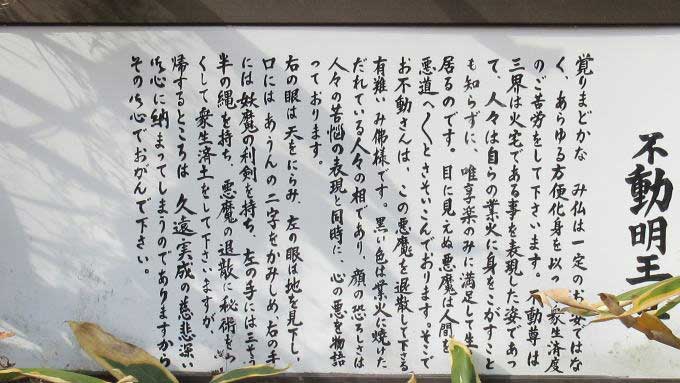 不動明王
覚りまどかな　み仏は一定のお姿ではな
く、あらゆる方便化身を以って衆生済度
のご苦労をして下さいます。不動尊は
三界は火宅である事を表現した姿であっ
て、人々は自らの業火に身をこがすこと
も知らずに、唯享楽のみに満足して生
居るのです。目に見えぬ悪魔は人間を
悪道へ〳〵とさそいこんでおります。そこで
お不動さんは、この悪魔を退散して下さる
有難いみ佛様です。黒い色は業火に焼けた
だれている人々の相であり、顔の恐ろしさは
人々の苦悩の表現と同時に、心の悪を物語
っております。
右の眼は天をにらみ、左の眼は地を見下し、
口にはあうんの二字をかみしめ、右の手
には妖魔の利剣を持ち、左の手には三せう
半の縄を持ち、悪魔の退散に秘術をつ
くして衆生済土をして下さいますが
帰するところは 久遠実成の慈悲深い
み心に納まってしまうのでありますから
そのみ心でおがんで下さい。